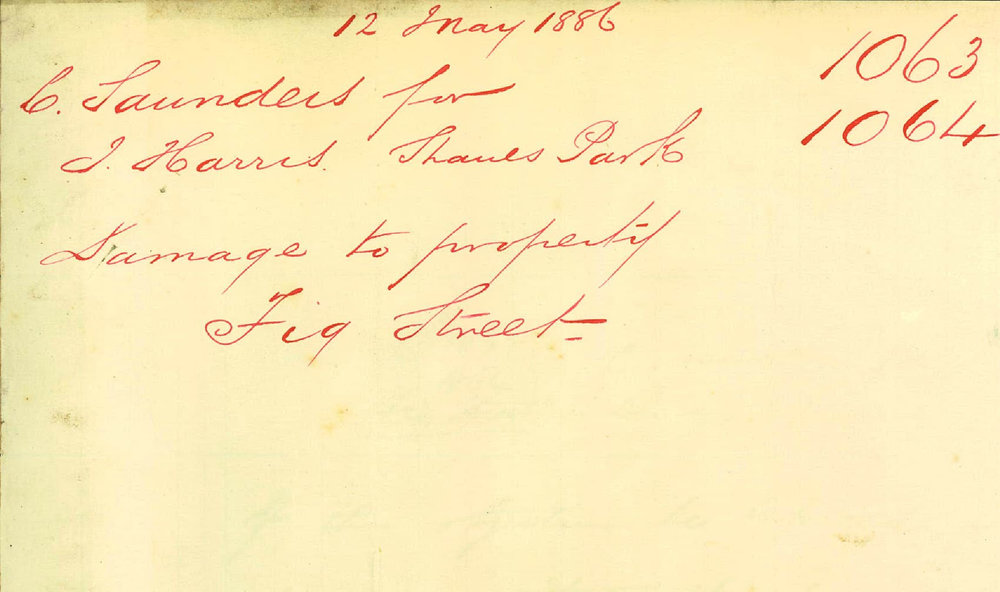 12 May 1886
1063
C. Saunders for
1064
J. Harris. Shanes Park
Damage to property
Fig Street